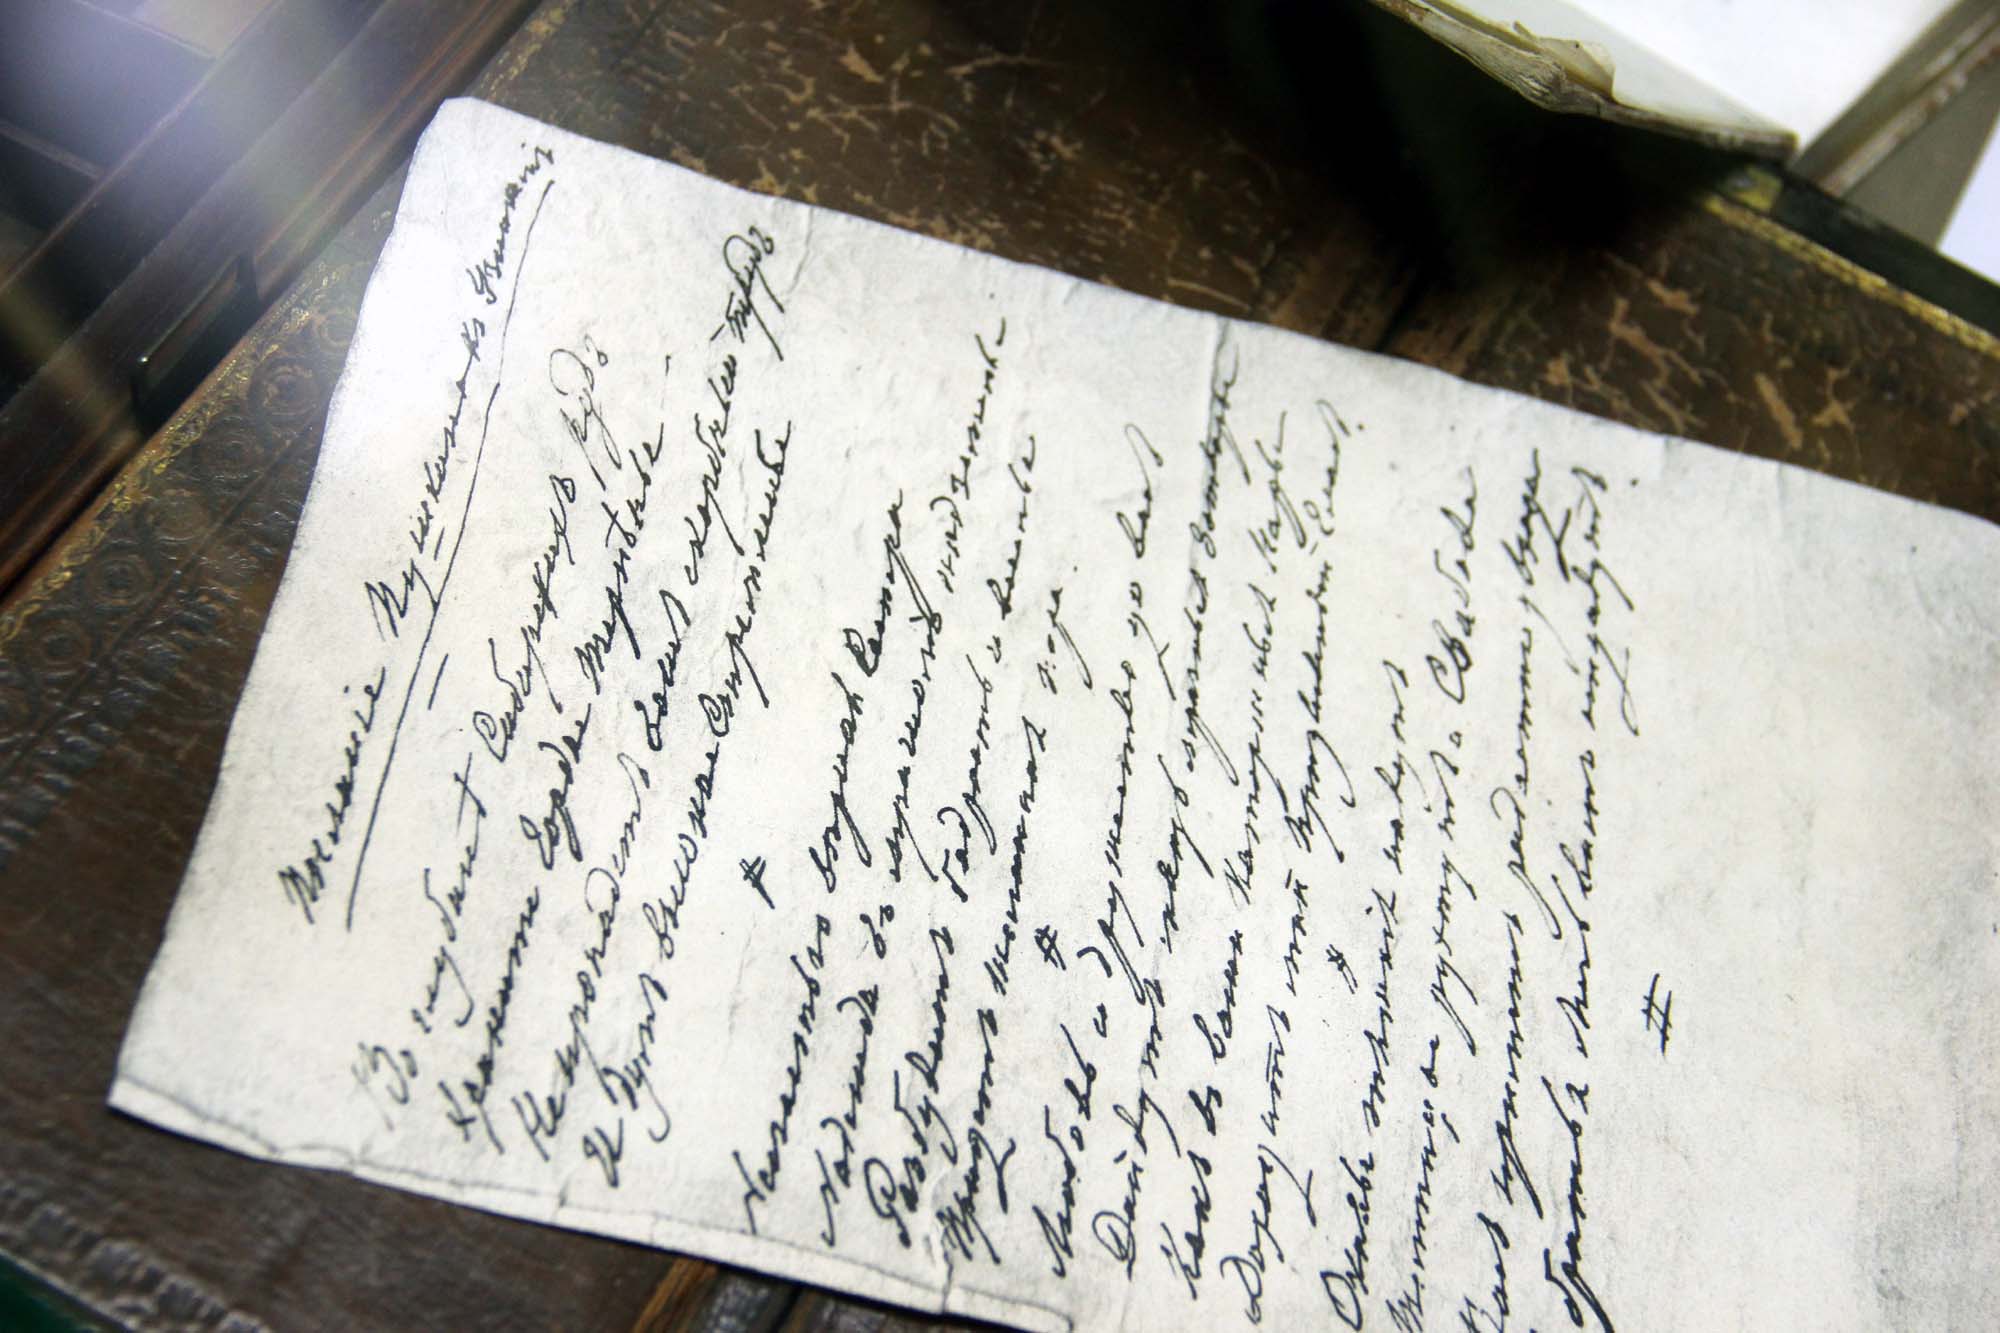 Посланіе Пушкина къ Узникамъ
Во глубинѣ Сибирскихъ рудъ
Храните гордое терпѣнье
Не пропадетъ вашъ скорбный трудъ
И думъ высокое стремленье
#
Несчастью вѣрная сестра
Надежда въ мрачномъ подземельи
Разбудитъ бодрость и веселье
Придетъ желанная пора.
#
Любовь и дружество до васъ
Дойдутъ сквозь мрачные затворы
Какъ въ ваши каторжныя норы
Доходитъ мой гласъ.
#
Оковы тяжкія падутъ
Темницы рухнутъ и Свобода
Васъ приметъ радостно у входа
братья мечъ вамъ отдадутъ.
#